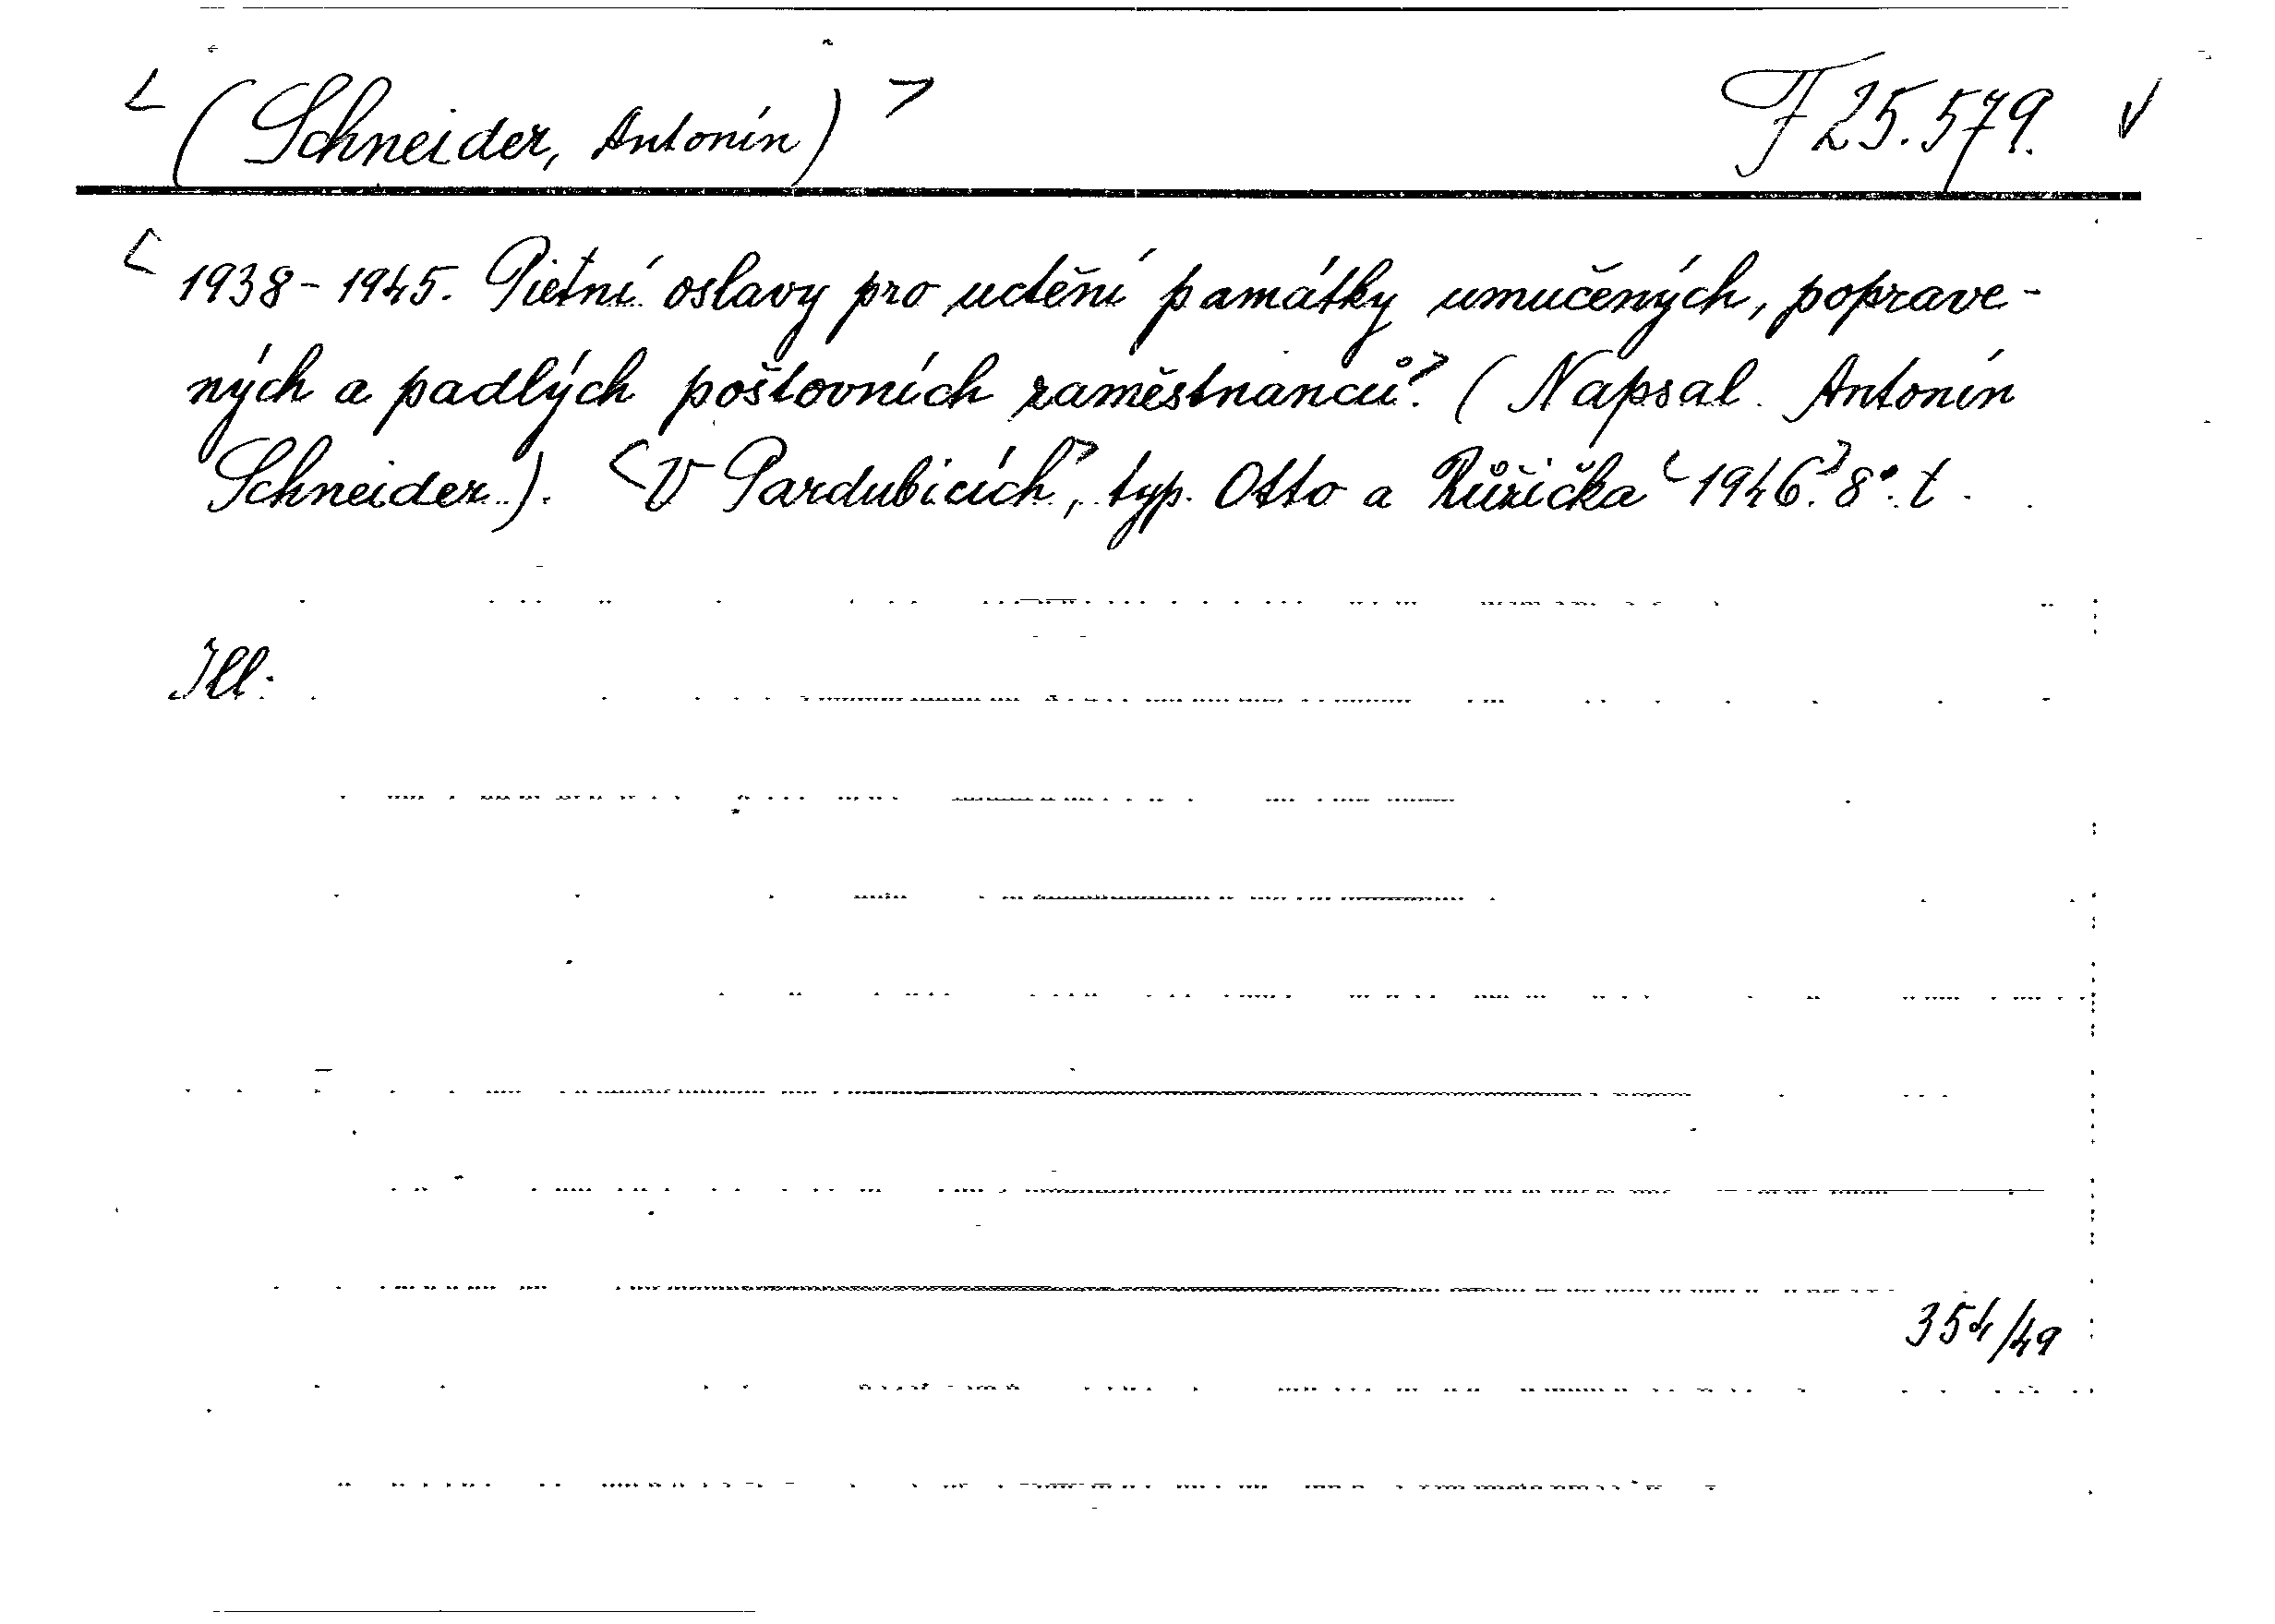 <(Schneider, Antonín)> F 25.579. √
<1938-1945. Pietní oslavy pro uctění památky umučených, poprave-
ných a padlých poštovních zaměstnanců.> (Napsal Antonín
Schneider). <V Pardubicích>, typ. Otto a Růžička <1946.> 8°. t.
Ill.
354/49